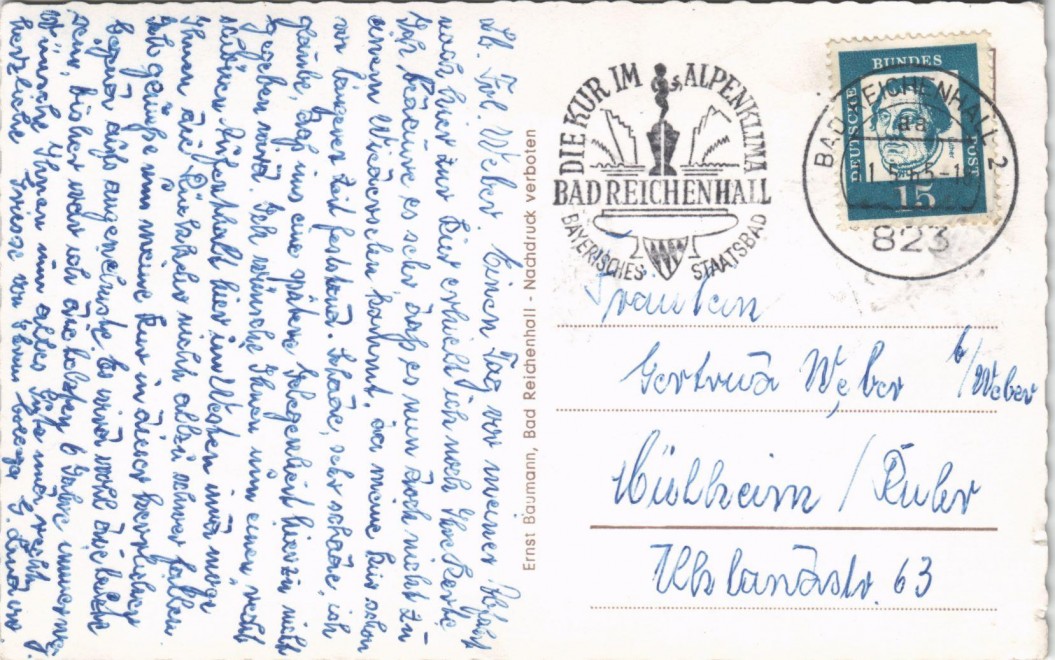 Lb. Frl. Weber. Einen Tag vor meiner Abfahrt
nach hier zur Kur erhielt ich noch Ihre Karte
Ich bedaure es sehr, daß es nun doch nicht zu
einem Wiedersehen kommt, da meine Kur schon
vor längerer Zeit feststand. Schade, sehr schade, ich
glaube, daß uns eine spätere Gelegenheit hierzu nicht
gegeben wird. Ich wünsche Ihnen nun einen recht
schönen Aufenthalt hier im Westen und möge
Ihnen die Rückkehr nicht allzu schwer fallen
Ich genieße nun meine Kur in dieser herrlichen
Gegend aufs angenehmste. Es wird wohl die letzte
sein, bisher war ich die letzten 6 Jahre immer
Wünsche Ihnen nun alles Gute und recht
herzliche Grüsse von Ihrem
Ernst Baumann, Bad Reichenhall - Nachdruck verboten
DIE KUR IM ALPENKLIMA
BAD REICHENHALL
BAYERISCHES STAATSBAD
DEUTSCHE BUNDESPOST
15
BAD REICHENHALL 2
aa
823
Fräulein
Gertrud Weber b/Weber
Mülheim / Ruhr
Uhlandstr. 63